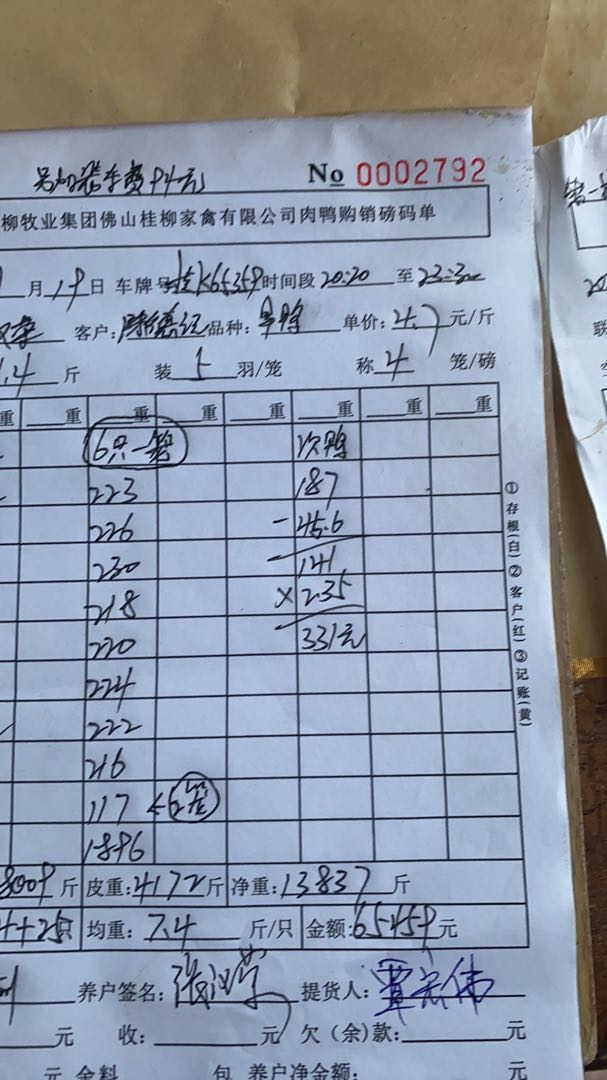 费94元 No 0002792
柳牧业集团佛山桂柳家禽有限公司肉鸭购销磅码单
月19日 车牌号 K65359 时间段 20:20 至 23:30
客户: 品种: 单价:4.7元/斤
.4 斤 装 5 羽/笼 称 4 笼/磅
重 重 重 重 重 重 重 重
6只一笼 次鸭
223 187
226 -45.6
230 141
218 ×2.35
220 331元
224
222
216
117
1896
①存根(白)②客户(红)③记账(黄)
8009斤 皮重:4172斤 净重:13837斤
4425只 均重:7.4 斤/只 金额:65459元
养户签名: 提货人:
元 收: 元 欠(余)款: 元
元 金料 包 养户净金额: 元
联